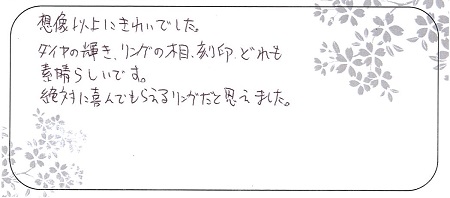 想像以上にきれいでした。
ダイヤの輝き、リングの相、刻印、どれも
素晴らしいです。
絶対に喜んでもらえるリングだと思えました。